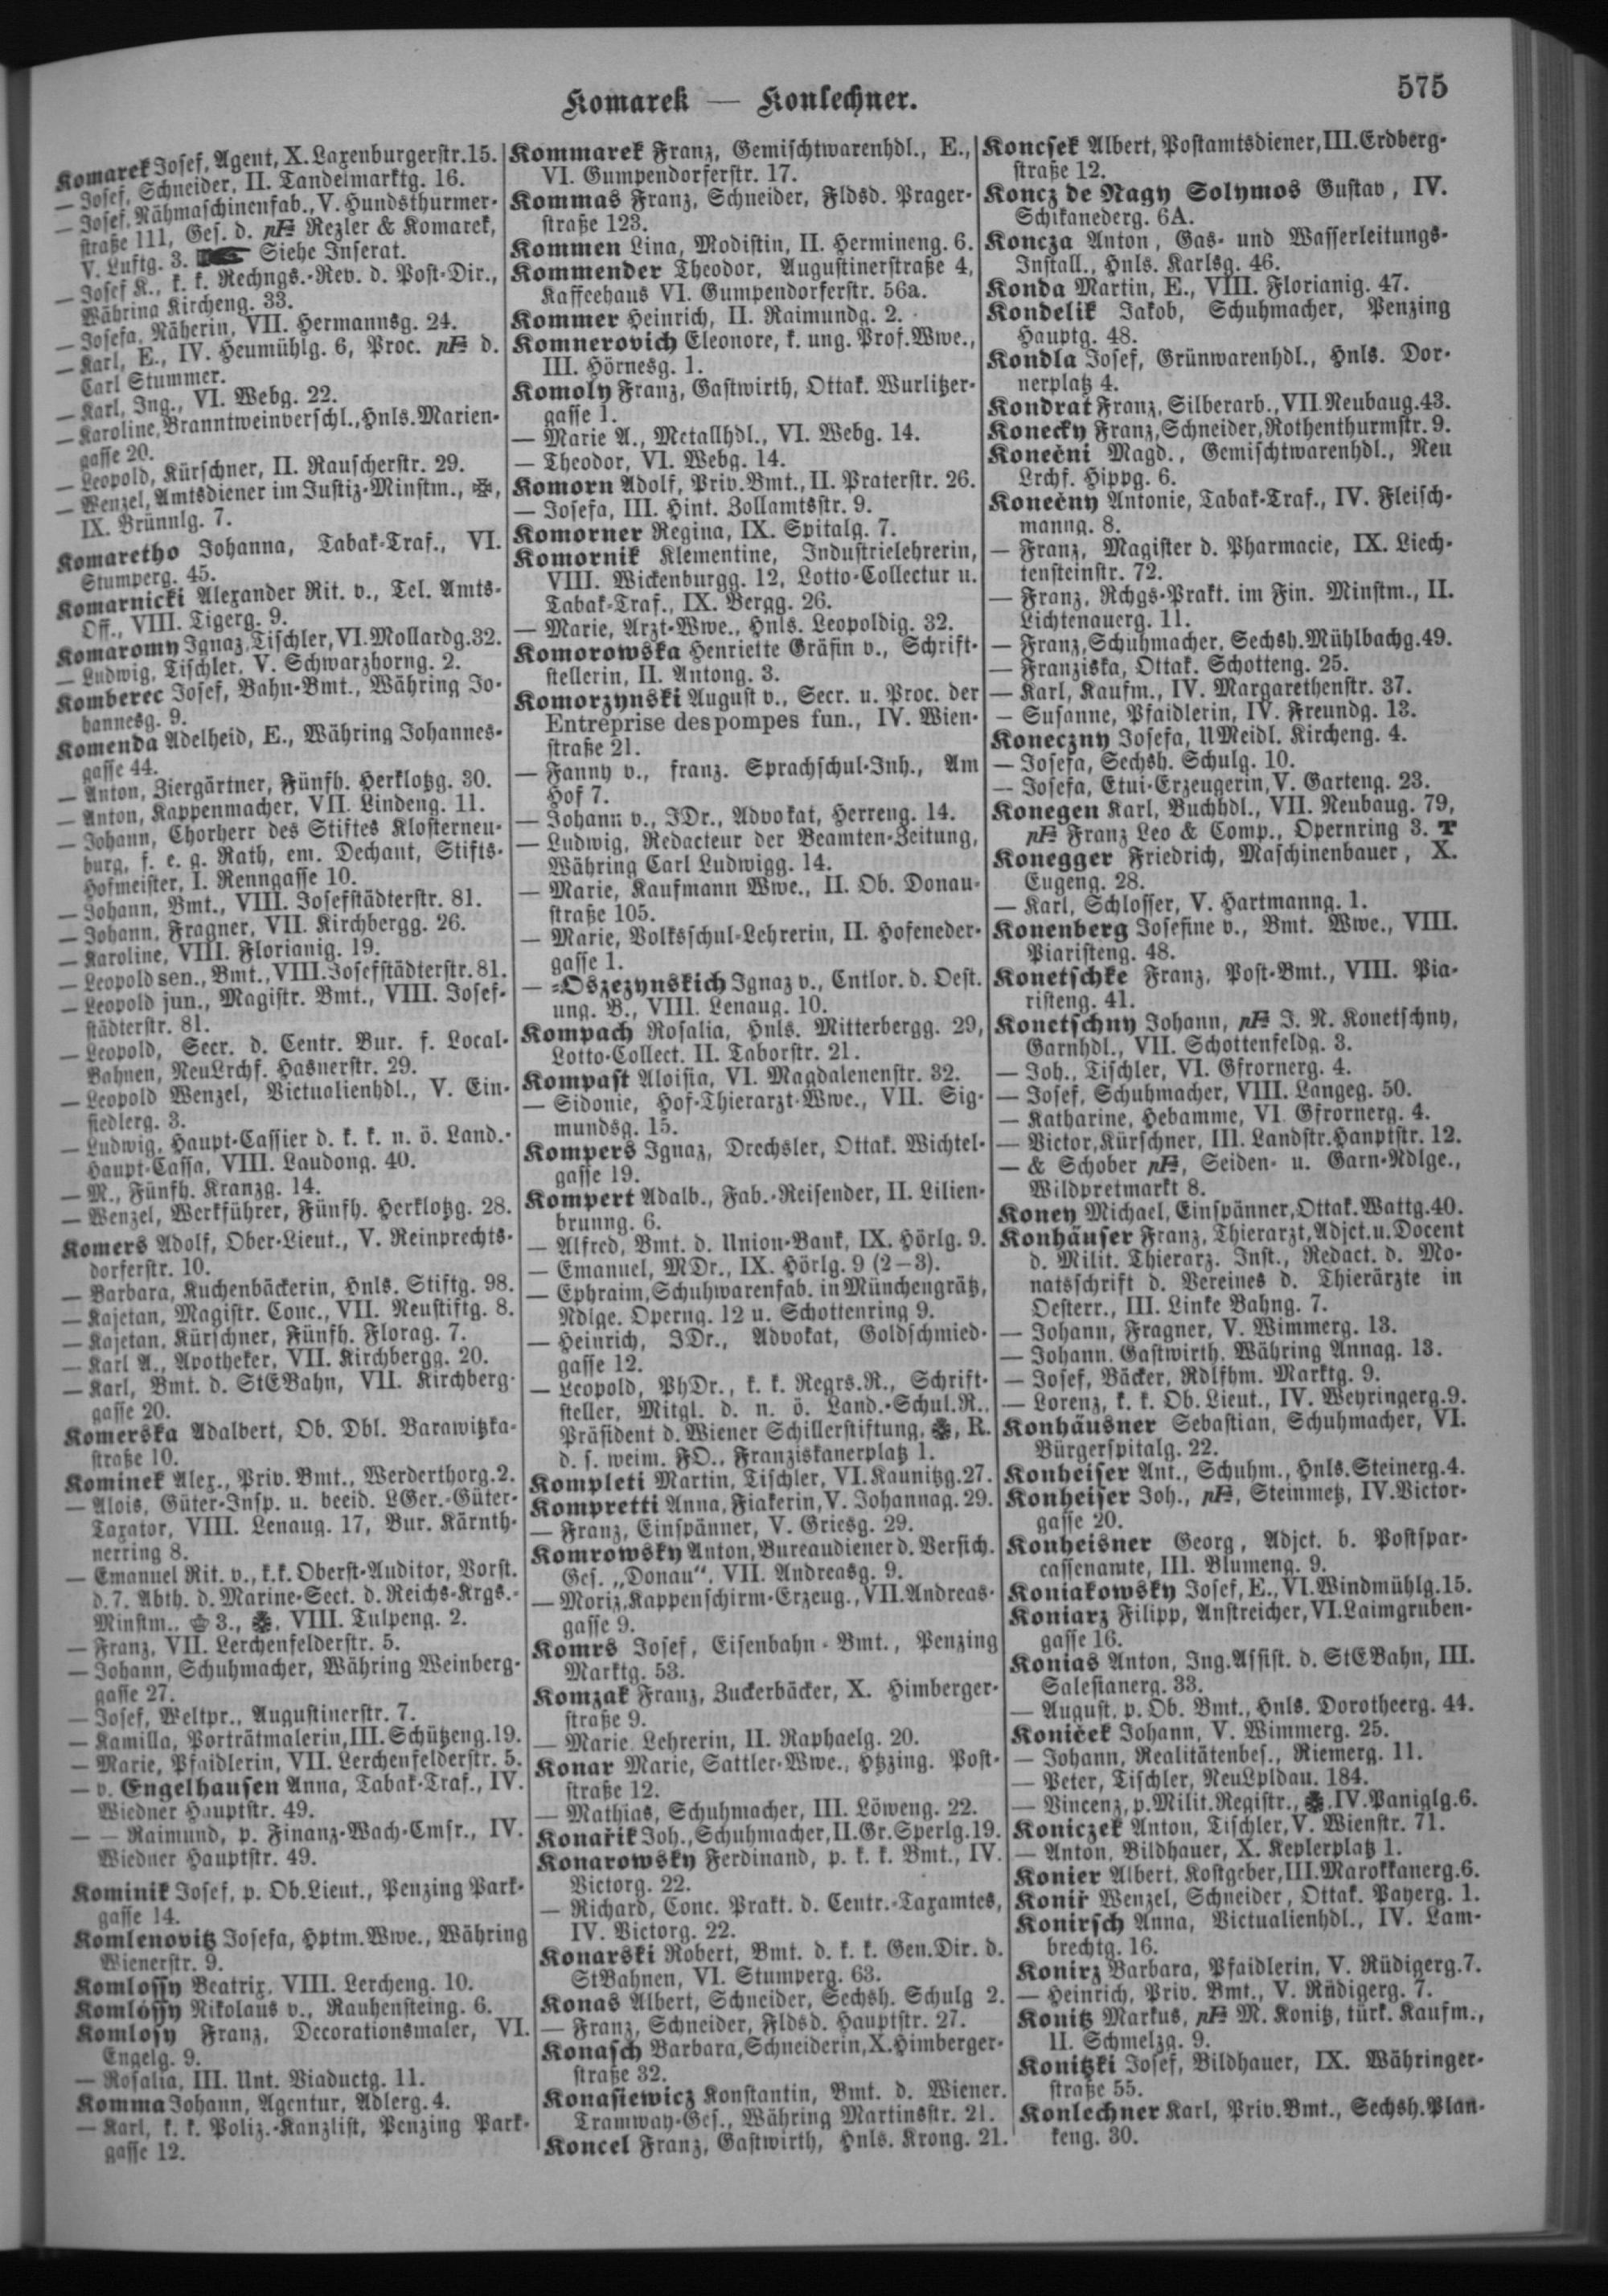 Komarek — Konlechner.
575
Komarek Josef, Agent, X. Laxenburgerstr. 15.
— Josef, Schneider, II. Tandelmarktg. 16.
— Josef, Nähmaschinenfab., V. Hundsthurmer-
straße 111, Ges. d. pF Rezler & Komarek,
V. Luftg. 3. ☛ Siehe Inserat.
— Josef K., k. k. Rechngs.-Rev. d. Post-Dir.,
Währing Kircheng. 33.
— Josefa, Näherin, VII. Hermannsg. 24.
— Karl, E., IV. Heumühlg. 6, Proc. pF d.
Carl Stummer.
— Karl, Ing., VI. Webg. 22.
— Karoline, Branntweinverschl., Hnls. Marien-
gasse 20.
— Leopold, Kürschner, II. Rauscherstr. 29.
— Wenzel, Amtsdiener im Justiz-Minstm., ✠,
IX. Brünnlg. 7.
Komaretho Johanna, Tabak-Traf., VI.
Stumperg. 45.
Komarnicki Alexander Rit. v., Tel. Amts-
Off., VIII. Tigerg. 9.
Komaromy Ignaz, Tischler, VI. Mollardg. 32.
— Ludwig, Tischler, V. Schwarzhorng. 2.
Komberec Josef, Bahn-Bmt., Währing Jo-
hannesg. 9.
Komenda Adelheid, E., Währing Johannes-
gasse 44.
— Anton, Ziergärtner, Fünfh. Herklotzg. 30.
— Anton, Kappenmacher, VII. Lindeng. 11.
— Johann, Chorherr des Stiftes Klosterneu-
burg, f. e. g. Rath, em. Dechant, Stifts-
Hofmeister, I. Renngasse 10.
— Johann, Bmt., VIII. Josefstädterstr. 81.
— Johann, Fragner, VII. Kirchbergg. 26.
— Karoline, VIII. Florianig. 19.
— Leopold sen., Bmt., VIII. Josefstädterstr. 81.
— Leopold jun., Magistr. Bmt., VIII. Josef-
städterstr. 81.
— Leopold, Secr. d. Centr. Bur. f. Local-
Bahnen, NeuLrchf. Hasnerstr. 29.
— Leopold Wenzel, Victualienhdl., V. Ein-
siedlerg. 3.
— Ludwig, Haupt-Cassier d. k. k. n. ö. Land.-
Haupt-Cassa, VIII. Laudong. 40.
— M., Fünfh. Kranzg. 14.
— Wenzel, Werkführer, Fünfh. Herklotzg. 28.
Komers Adolf, Ober-Lieut., V. Reinprechts-
dorferstr. 10.
— Barbara, Kuchenbäckerin, Hnls. Stiftg. 98.
— Kajetan, Magistr. Conc., VII. Neustiftg. 8.
— Kajetan, Kürschner, Fünfh. Florag. 7.
— Karl A., Apotheker, VII. Kirchbergg. 20.
— Karl, Bmt. d. StEBahn, VII. Kirchberg-
gasse 20.
Komerska Adalbert, Ob. Dbl. Barawitzka-
straße 10.
Kominek Alex., Priv. Bmt., Werderthorg. 2.
— Alois, Güter-Insp. u. beeid. LGer.-Güter-
Taxator, VIII. Lenaug. 17, Bur. Kärnth-
nerring 8.
— Emanuel Rit. v., k.k. Oberst-Auditor, Vorst.
d. 7. Abth. d. Marine-Sect. d. Reichs-Krgs.-
Minstm., 3., VIII. Tulpeng. 2.
— Franz, VII. Lerchenfelderstr. 5.
— Johann, Schuhmacher, Währing Weinberg-
gasse 27.
— Josef, Weltpr., Augustinerstr. 7.
— Kamilla, Porträtmalerin, III. Schützeng. 19.
— Marie, Pfaidlerin, VII. Lerchenfelderstr. 5.
— v. Engelhausen Anna, Tabak-Traf., IV.
Wiedner Hauptstr. 49.
— — Raimund, p. Finanz-Wach-Cmsr., IV.
Wiedner Hauptstr. 49.
Kominik Josef, p. Ob.Lieut., Penzing Park-
gasse 14.
Komlenovitz Josefa, Hptm. Wwe., Währing
Wienerstr. 9.
Komlossy Beatrix, VIII. Lercheng. 10.
Komlóssy Nikolaus v., Rauhensteing. 6.
Komlosy Franz, Decorationsmaler, VI.
Engelg. 9.
— Rosalia, III. Unt. Viaductg. 11.
Komma Johann, Agentur, Adlerg. 4.
— Karl, k. k. Poliz.-Kanzlist, Penzing Park-
gasse 12.
Kommarek Franz, Gemischtwarenhdl., E.,
VI. Gumpendorferstr. 17.
Kommas Franz, Schneider, Fldsd. Prager-
straße 123.
Kommen Lina, Modistin, II. Hermineng. 6.
Kommender Theodor, Augustinerstraße 4,
Kaffeehaus VI. Gumpendorferstr. 56a.
Kommer Heinrich, II. Raimundg. 2.
Komnerovich Eleonore, k. ung. Prof. Wwe.,
III. Hörnesg. 1.
Komoly Franz, Gastwirth, Ottak. Wurlitzer-
gasse 1.
— Marie A., Metallhdl., VI. Webg. 14.
— Theodor, VI. Webg. 14.
Komorn Adolf, Priv. Bmt., II. Praterstr. 26.
— Josefa, III. Hint. Zollamtsstr. 9.
Komorner Regina, IX. Spitalg. 7.
Komornik Klementine, Industrielehrerin,
VIII. Wickenburgg. 12, Lotto-Collectur u.
Tabak-Traf., IX. Bergg. 26.
— Marie, Arzt-Wwe., Hnls. Leopoldig. 32.
Komorowska Henriette Gräfin v., Schrift-
stellerin, II. Antong. 3.
Komorzynski August v., Secr. u. Proc. der
Entreprise des pompes fun., IV. Wien-
straße 21.
— Fanny v., franz. Sprachschul-Inh., Am
Hof 7.
— Johann v., JDr., Advokat, Herreng. 14.
— Ludwig, Redacteur der Beamten-Zeitung,
Währing Carl Ludwigg. 14.
— Marie, Kaufmann Wwe., II. Ob. Donau-
straße 105.
— Marie, Volksschul-Lehrerin, II. Hofeneder-
gasse 1.
— -Oszezynskich Ignaz v., Cntlor. d. Oest.
ung. B., VIII. Lenaug. 10.
Kompach Rosalia, Hnls. Mitterbergg. 29,
Lotto-Collect. II. Taborstr. 21.
Kompast Aloisia, VI. Magdalenenstr. 32.
— Sidonie, Hof-Thierarzt-Wwe., VII. Sig-
mundsg. 15.
Kompers Ignaz, Drechsler, Ottak. Wichtel-
gasse 19.
Kompert Adalb., Fab.-Reisender, II. Lilien-
brunng. 6.
— Alfred, Bmt. d. Union-Bank, IX. Hörlg. 9.
— Emanuel, MDr., IX. Hörlg. 9 (2—3).
— Ephraim, Schuhwarenfab. in Münchengrätz,
Ndlge. Operng. 12 u. Schottenring 9.
— Heinrich, JDr., Advokat, Goldschmied-
gasse 12.
— Leopold, PhDr., k. k. Regrs.R., Schrift-
steller, Mitgl. d. n. ö. Land.-Schul.R.,
Präsident d. Wiener Schillerstiftung, R.
d. s. weim. FO., Franziskanerplatz 1.
Kompleti Martin, Tischler, VI. Kaunitzg. 27.
Kompretti Anna, Fiakerin, V. Johannag. 29.
— Franz, Einspänner, V. Griesg. 29.
Komrowsky Anton, Bureaudiener d. Versich.
Ges. „Donau“, VII. Andreasg. 9.
— Moriz, Kappenschirm-Erzeug., VII. Andreas-
gasse 9.
Komrs Josef, Eisenbahn-Bmt., Penzing
Marktg. 53.
Komzak Franz, Zuckerbäcker, X. Himberger-
straße 9.
— Marie, Lehrerin, II. Raphaelg. 20.
Konar Marie, Sattler-Wwe., Htzing. Post-
straße 12.
— Mathias, Schuhmacher, III. Löweng. 22.
Konařik Joh., Schuhmacher, II. Gr. Sperlg. 19.
Konarowsky Ferdinand, p. k. k. Bmt., IV.
Victorg. 22.
— Richard, Conc. Prakt. d. Centr.-Taxamtes,
IV. Victorg. 22.
Konarski Robert, Bmt. d. k. k. Gen.Dir. d.
StBahnen, VI. Stumperg. 63.
Konas Albert, Schneider, Sechsh. Schulg 2.
— Franz, Schneider, Fldsd. Hauptstr. 27.
Konasch Barbara, Schneiderin, X. Himberger-
straße 32.
Konasiewicz Konstantin, Bmt. d. Wiener.
Tramway-Ges., Währing Martinsstr. 21.
Koncel Franz, Gastwirth, Hnls. Krong. 21.
Koncsek Albert, Postamtsdiener, III. Erdberg-
straße 12.
Koncz de Nagy Solymos Gustav, IV.
Schikanederg. 6A.
Koncza Anton, Gas- und Wasserleitungs-
Install., Hnls. Karlsg. 46.
Konda Martin, E., VIII. Florianig. 47.
Kondelik Jakob, Schuhmacher, Penzing
Hauptg. 48.
Kondla Josef, Grünwarenhdl., Hnls. Dor-
nerplatz 4.
Kondrat Franz, Silberarb., VII. Neubaug. 43.
Konecky Franz, Schneider, Rothenthurmstr. 9.
Konečni Magd., Gemischtwarenhdl., Neu
Lrchf. Hippg. 6.
Konečny Antonie, Tabak-Traf., IV. Fleisch-
manng. 8.
— Franz, Magister d. Pharmacie, IX. Liech-
tensteinstr. 72.
— Franz, Rchgs-Prakt. im Fin. Minstm., II.
Lichtenauerg. 11.
— Franz, Schuhmacher, Sechsh. Mühlbachg. 49.
— Franziska, Ottak. Schotteng. 25.
— Karl, Kaufm., IV. Margarethenstr. 37.
— Susanne, Pfaidlerin, IV. Freundg. 13.
Koneczny Josefa, UMeidl. Kircheng. 4.
— Josefa, Sechsh. Schulg. 10.
— Josefa, Etui-Erzeugerin, V. Garteng. 23.
Konegen Karl, Buchhdl., VII. Neubaug. 79,
pF Franz Leo & Comp., Opernring 3. T
Konegger Friedrich, Maschinenbauer, X.
Eugeng. 28.
— Karl, Schlosser, V. Hartmanng. 1.
Konenberg Josefine v., Bmt. Wwe., VIII.
Piaristeng. 48.
Konetschke Franz, Post-Bmt., VIII. Pia-
risteng. 41.
Konetschny Johann, pF J. N. Konetschny,
Garnhdl., VII. Schottenfeldg. 3.
— Joh., Tischler, VI. Gfrornerg. 4.
— Josef, Schuhmacher, VIII. Langeg. 50.
— Katharine, Hebamme, VI. Gfrornerg. 4.
— Victor, Kürschner, III. Landstr. Hauptstr. 12.
— & Schober pF, Seiden- u. Garn-Ndlge.,
Wildpretmarkt 8.
Koney Michael, Einspänner, Ottak. Wattg. 40.
Konhäuser Franz, Thierarzt, Adjct. u. Docent
d. Milit. Thierarz. Inst., Redact. d. Mo-
natsschrift d. Vereines d. Thierärzte in
Oesterr., III. Linke Bahng. 7.
— Johann, Fragner, V. Wimmerg. 13.
— Johann, Gastwirth, Währing Annag. 13.
— Josef, Bäcker, Rdlfhm. Marktg. 9.
— Lorenz, k. k. Ob. Lieut., IV. Weyringerg. 9.
Konhäusner Sebastian, Schuhmacher, VI.
Bürgerspitalg. 22.
Konheiser Ant., Schuhm., Hnls. Steinerg. 4.
Konheiser Joh., pF, Steinmetz, IV. Victor-
gasse 20.
Konheisner Georg, Adjct. b. Postspar-
cassenamte, III. Blumeng. 9.
Koniakowsky Josef, E., VI. Windmühlg. 15.
Koniarz Filipp, Anstreicher, VI. Laimgruben-
gasse 16.
Konias Anton, Ing. Assist. d. StEBahn, III.
Salesianerg. 33.
— August, p. Ob. Bmt., Hnls. Dorotheerg. 44.
Koniček Johann, V. Wimmerg. 25.
— Johann, Realitätenbes., Riemerg. 11.
— Peter, Tischler, NeuLpldau. 184.
— Vincenz, p. Milit. Registr., IV. Paniglg. 6.
Koniczek Anton, Tischler, V. Wienstr. 71.
— Anton, Bildhauer, X. Keplerplatz 1.
Konier Albert, Kostgeber, III. Marokkanerg. 6.
Koniř Wenzel, Schneider, Ottak. Payerg. 1.
Konirsch Anna, Victualienhdl., IV. Lam-
brechtg. 16.
Konirz Barbara, Pfaidlerin, V. Rüdigerg. 7.
— Heinrich, Priv. Bmt., V. Rüdigerg. 7.
Konitz Markus, pF M. Konitz, türk. Kaufm.,
II. Schmelzg. 9.
Konitzki Josef, Bildhauer, IX. Währinger-
straße 55.
Konlechner Karl, Priv. Bmt., Sechsh. Plan-
keng. 30.